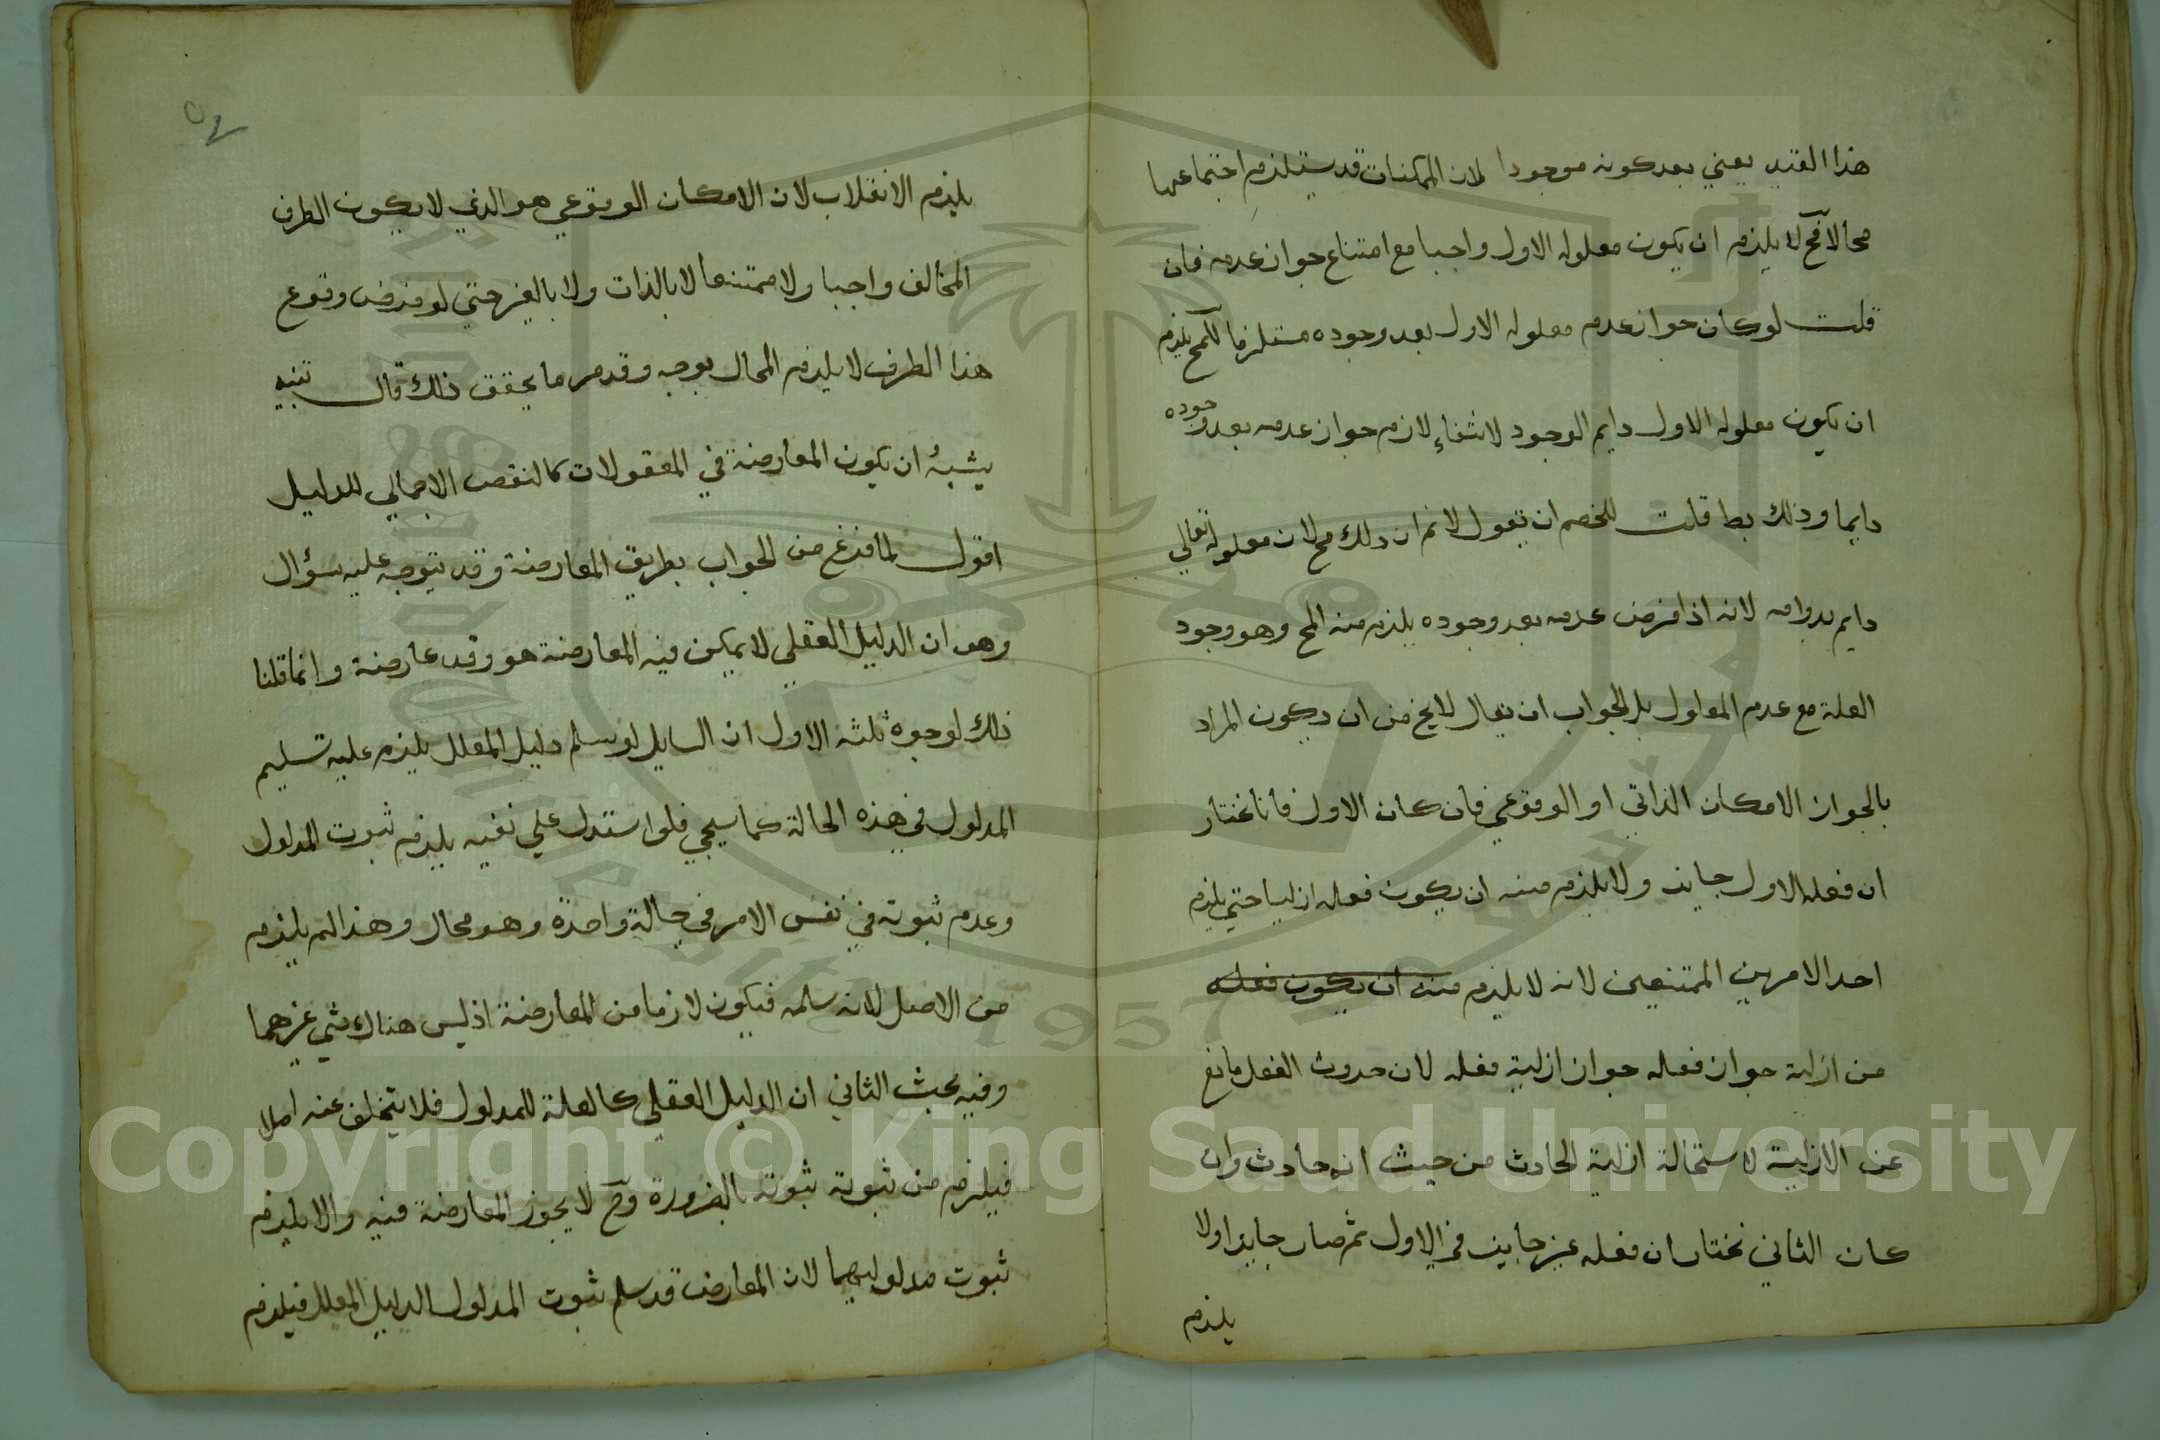 هذا القيد يعني بعد كونه موجودا لان الممكنات قد يستلزم اجتماعها
محالا فح لا يلزم ان يكون معلوله الاول واجبا مع امتناع جواز عدمه فان
قلت لو كان جواز عدم معلوله الاول بعد وجوده مستلزما للمح يلزم
ان يكون معلوله الاول دايم الوجود لانتفاء لازم جواز عدمه بعد وجوده
دايما وذلك بط قلت للخصم ان يقول لانم ان ذلك مح لان معلوله تعالي
دايم بدوامه لانه اذا فرض عدمه بعد وجوده يلزم منه المح وهو وجود
العلة مع عدم المعلول بل الجواب ان يقال لايخ من ان يكون المراد
بالجواز الامكان الذاتي او الوقوعي فان كان الاول فانا نختار
ان فعله الاول جايز ولا يلزم منه ان يكون فعله ازليا حتي يلزم
احد الامرين الممتنعين لانه لا يلزم منه ان يكون فعله
من ازلية جواز فعله جواز ازلية فعله لان حدوث الفعل مانع
عن الازلية لاستحالة ازلية الحادث من حيث انه حادث وان
كان الثاني نختار ان فعله غير جايز في الاول ثم صار جايزا ولا
يلزم
٥٢
يلزم الانقلاب لان الامكان الوقوعي هو الذي لا يكون الطرف
المخالف واجبا ولا ممتنعا لا بالذات ولا بالغير حتي لو فرض وقوع
هذا الطرف لا يلزم المحال بوجه وقد مر ما يحقق ذلك قال تنبيه
يشبهُ ان يكون المعارضة في المعقولات كالنقض الاجمالي للدليل
اقول لما فرغ من الجواب بطريق المعارضة وقد يتوجه عليه سؤال
وهو ان الدليل العقلي لا يمكن فيه المعارضة هو وقد عارضة وانما قلنا
ذلك لوجوه ثلثة الاول ان السايل لو سلم دليل المعلل يلزم عليه تسليم
المدلول في هذه الحالة كما سيجي فلو استدل علي نفيه يلزم ثبوت المدلول
وعدم ثبوته في نفس الامر في حالة واحدة وهو محال وهذا لم يلزم
من الاصل لانه سلمه فيكون لازما من المعارضة اذ ليس هناك شي غيرهما
وفيه بحث الثاني ان الدليل العقلي كالعلة للمدلول فلا يتخلف عنه اصلا
فيلزم من ثبوته ثبوته بالضرورة وح لا يجوز المعارضة فيه والا يلزم
ثبوت مدلوليهما لان المعارض قد سلم ثبوت المدلول الدليل المعلل فيلزم
Copyright © King Saud University
1957